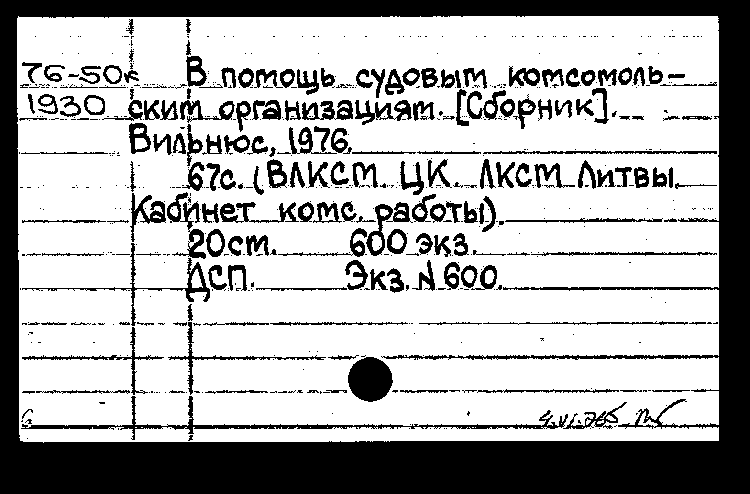 76-50к В помощь судовым комсомоль-
1930 ским организациям. [Сборник].
Вильнюс, 1976.
67с. (ВЛКСМ. ЦК. ЛКСМ Литвы.
Кабинет комс. работы).
20см. 600 экз.
ДСП. Экз. N 600.